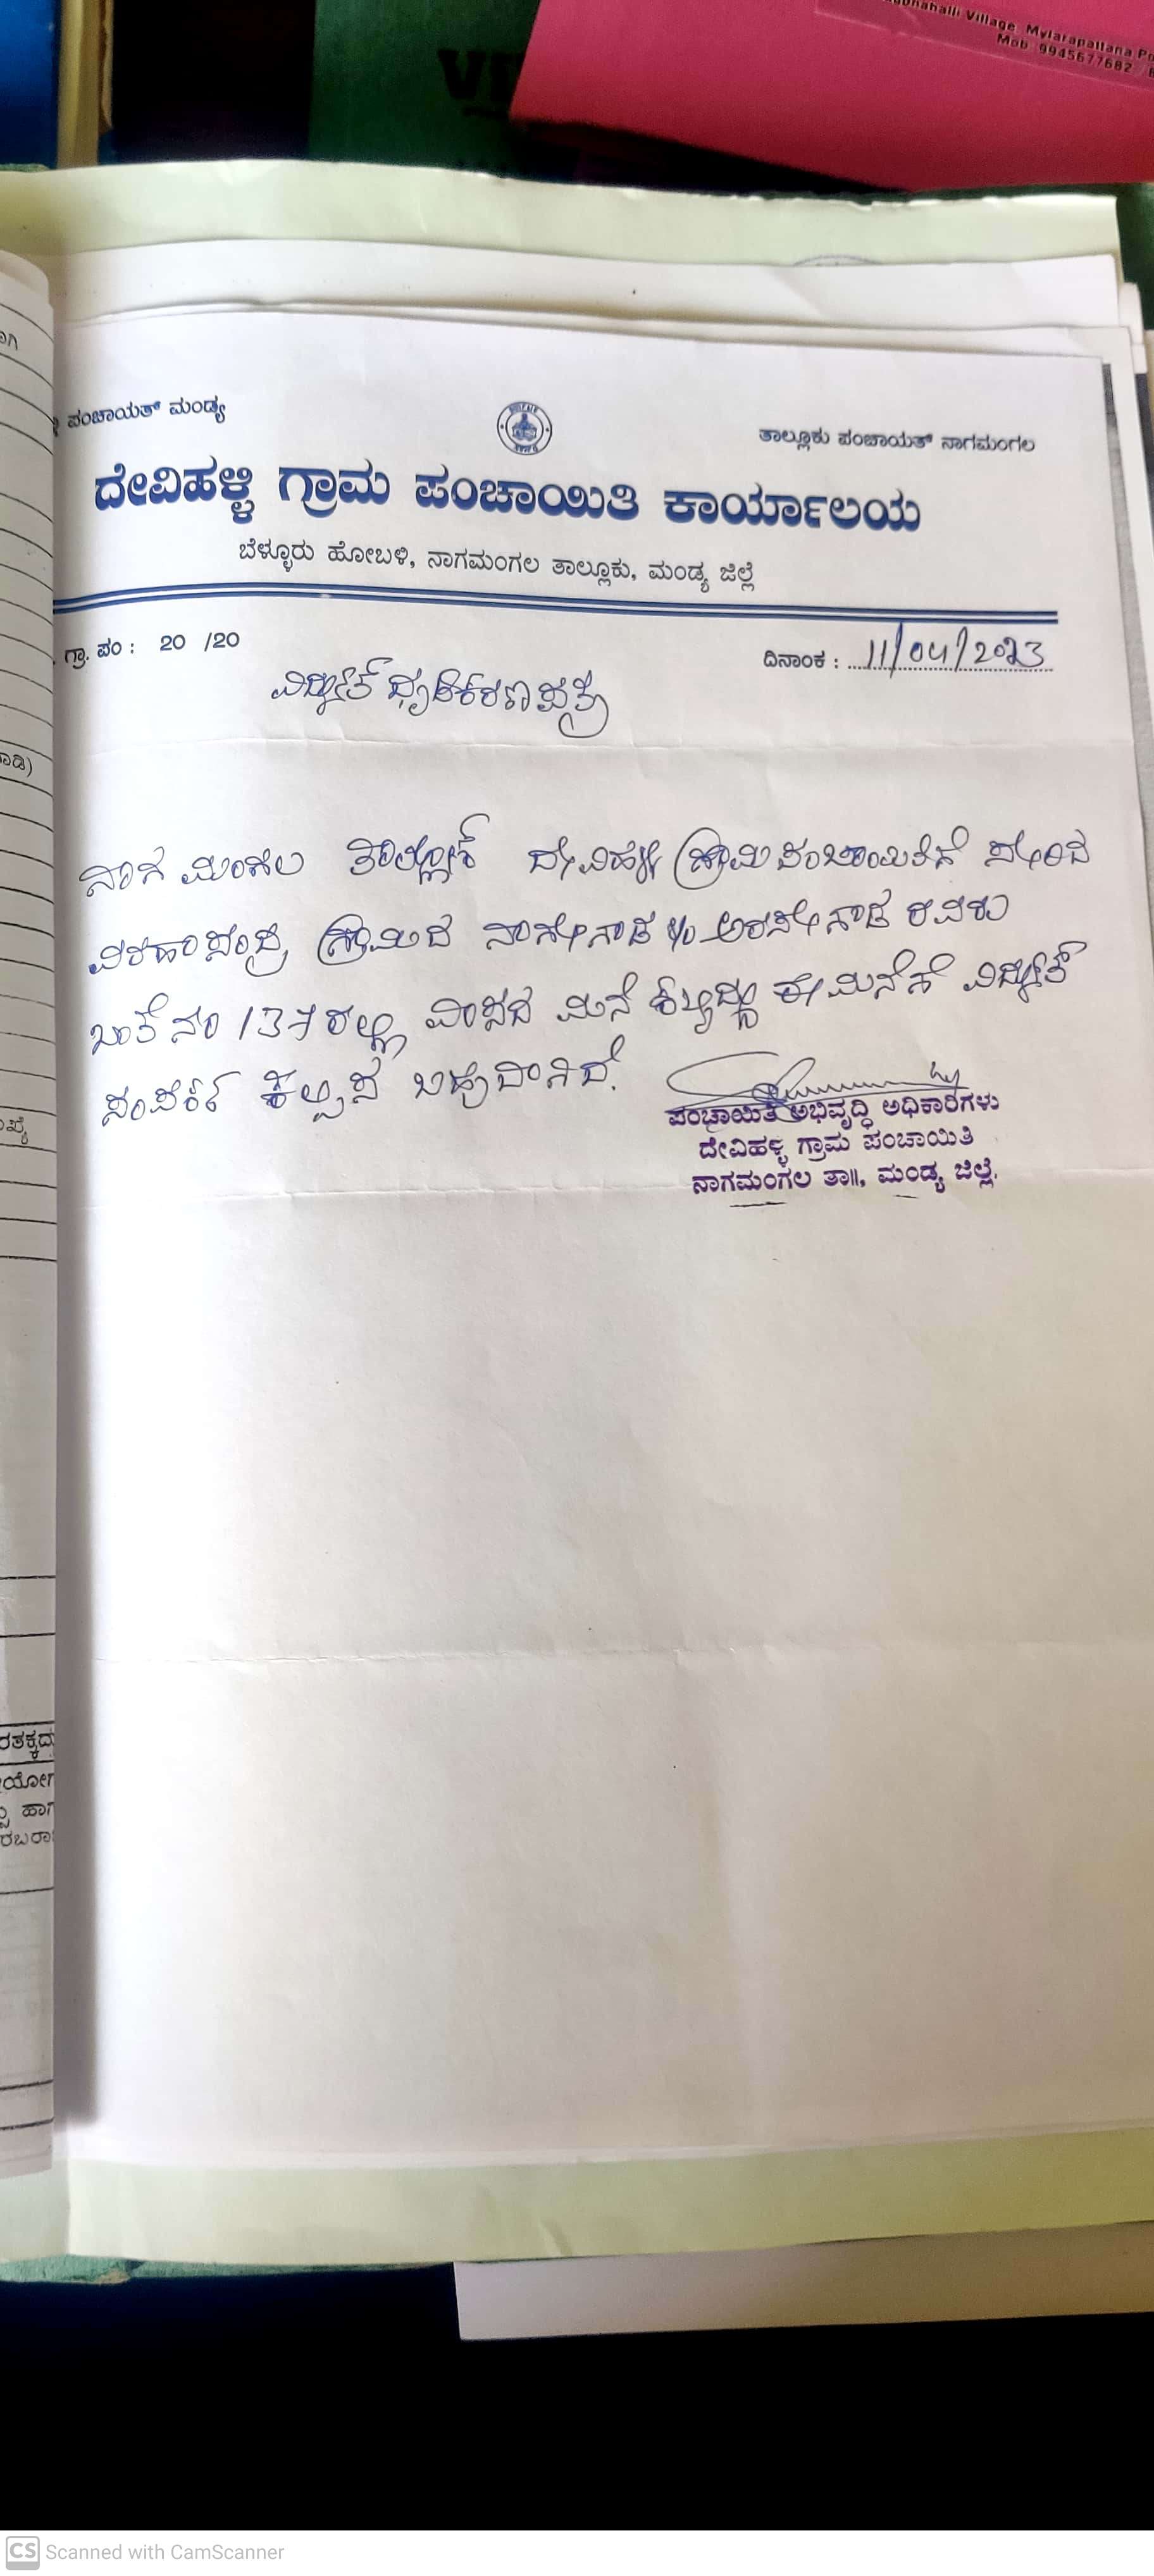 ubnahalli Village, Mylarapattana Po
Mob 9945677682
ಪಂಚಾಯತ್ ಮಂಡ್ಯ
ತಾಲ್ಲೂಕು ಪಂಚಾಯತ್ ನಾಗಮಂಗಲ
ದೇವಿಹಳ್ಳಿ ಗ್ರಾಮ ಪಂಚಾಯಿತಿ ಕಾರ್ಯಾಲಯ
ಬೆಳ್ಳೂರು ಹೋಬಳಿ, ನಾಗಮಂಗಲ ತಾಲ್ಲೂಕು, ಮಂಡ್ಯ ಜಿಲ್ಲೆ
ಗ್ರಾ. ಪಂ : 20 /20
ದಿನಾಂಕ : 11/04/2023
ವಿದ್ಯುತ್ ಧೃಡೀಕರಣ ಪತ್ರ
ನಾಗಮಂಗಲ ತಾಲ್ಲೂಕ್ ದೇವಿಹಳ್ಳಿ ಗ್ರಾಮ ಪಂಚಾಯಿತಿಗೆ ಸೇರಿದ
ಗ್ರಾಮದ ನಾಗೇಗೌಡ S/o ರವರು
ಖಾತೆ ನಂ 137 ರಲ್ಲಿ ವಾಸದ ಮನೆ ಈ ಮನೆಗೆ ವಿದ್ಯುತ್
ಸಂಪರ್ಕ ಕಲ್ಪಿಸ ಬಹುದಾಗಿದೆ.
ಪಂಚಾಯಿತಿ ಅಭಿವೃದ್ಧಿ ಅಧಿಕಾರಿಗಳು
ದೇವಿಹಳ್ಳಿ ಗ್ರಾಮ ಪಂಚಾಯಿತಿ
ನಾಗಮಂಗಲ ತಾ||, ಮಂಡ್ಯ ಜಿಲ್ಲೆ.
CS Scanned with CamScanner